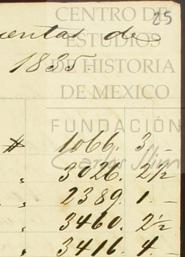 CENTRO DE
25
ESTUDIOS
uentas de
DE HISTORIA
1835.
DE MEXICO
FUNDACIÓN
Carlos Slim
# 1066. 3 –
„ 3026. 2½
„ 2389. 1. –
„ 3460. 2½
„ 3416. 4. –